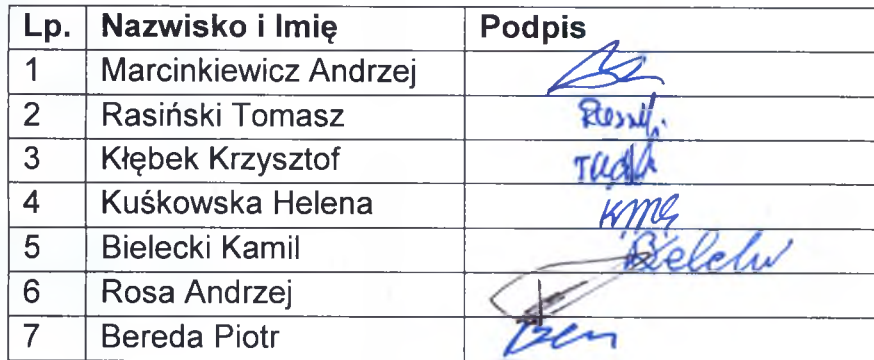 Lp. Nazwisko i Imię Podpis
1 Marcinkiewicz Andrzej
2 Rasiński Tomasz
3 Kłębek Krzysztof
4 Kuśkowska Helena
5 Bielecki Kamil
6 Rosa Andrzej
7 Bereda Piotr